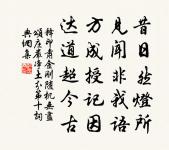 昔日然燈所
見聞非我語
方成授記因
達道超今古
釋印肅金剛隨機無盡
頌莊嚴淨土分第十詞
典網集